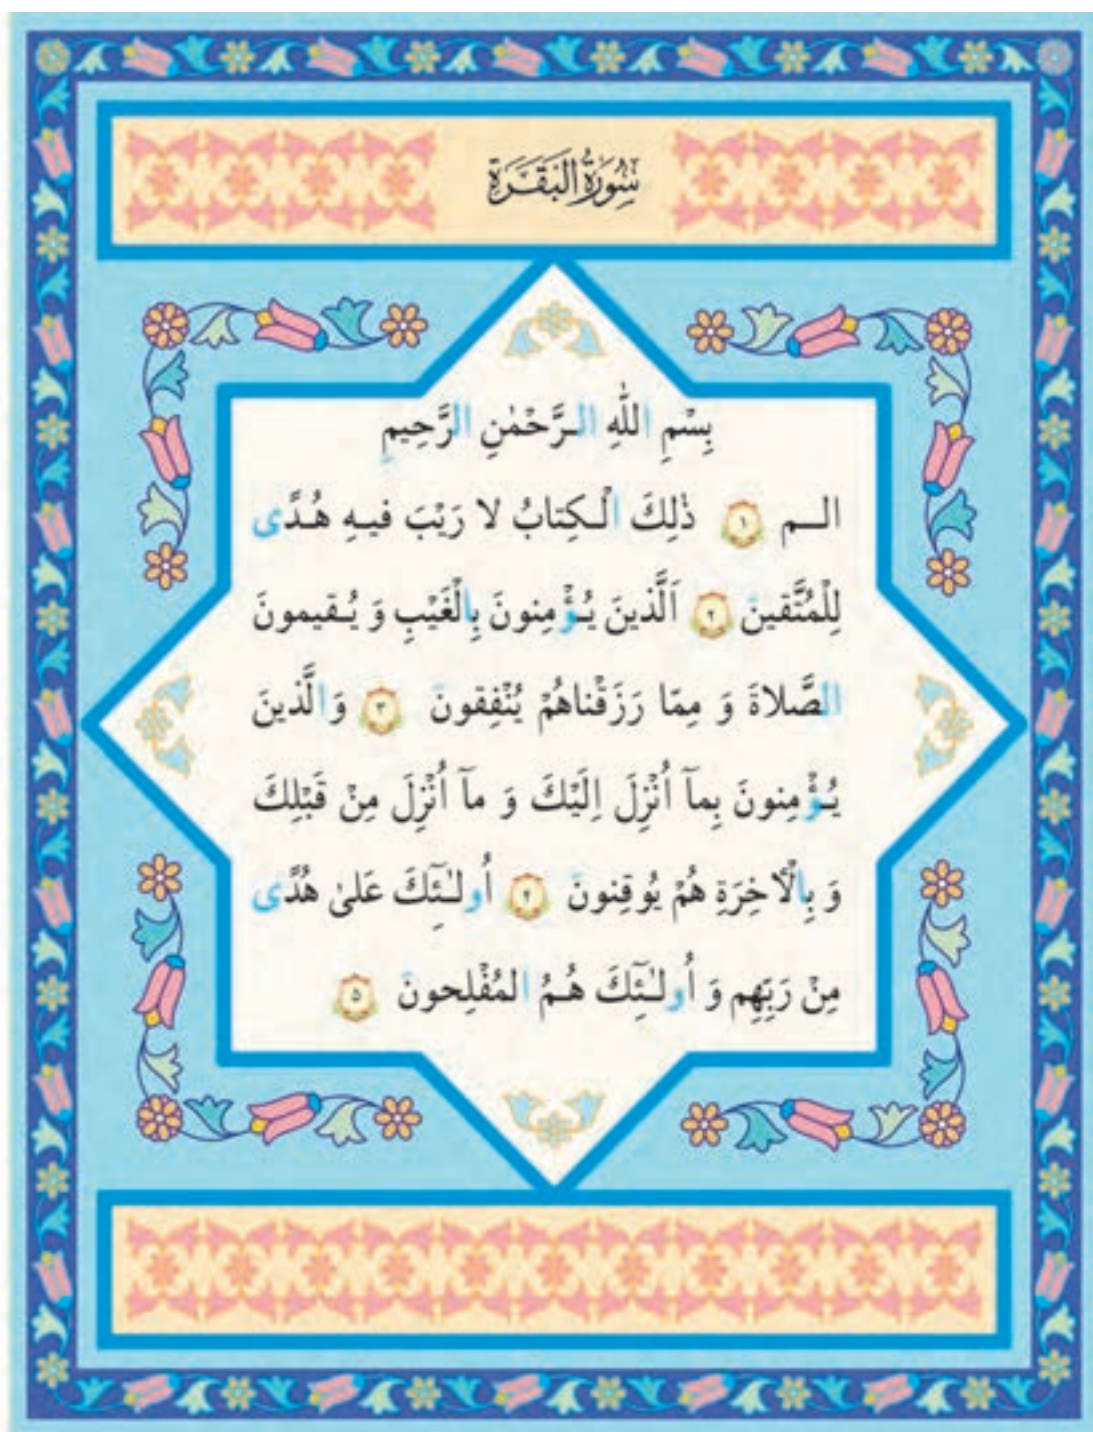 سُورَةُ الْبَقَرَةِ
بِسْمِ اللّٰهِ الرَّحْمٰنِ الرَّحِيمِ
الـم ١ ذٰلِكَ الْكِتابُ لا رَيْبَ فيهِ هُدًى
لِلْمُتَّقينَ ٢ اَلَّذينَ يُؤْمِنونَ بِالْغَيْبِ وَ يُقيمونَ
الصَّلاةَ وَ مِمّا رَزَقْناهُمْ يُنْفِقونَ ٣ وَالَّذينَ
يُؤْمِنونَ بِمآ اُنْزِلَ اِلَيْكَ وَ مآ اُنْزِلَ مِنْ قَبْلِكَ
وَ بِالْاٰخِرَةِ هُمْ يُوقِنونَ ۴ اُولٰـئِٓكَ عَلىٰ هُدًى
مِنْ رَبِّهِم وَ اُولٰـئِٓكَ هُمُ المُفْلِحونَ ۵